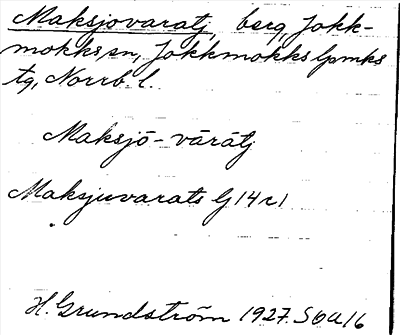 Maksjovaratj, berg, Jokk-
mokks sn, Jokkmokks lpmks
tg, Norrb. l.
Maksjō-vārātj
Maksjuvarats G 14 r 1
H. Grundström 1927. S 6 a 16